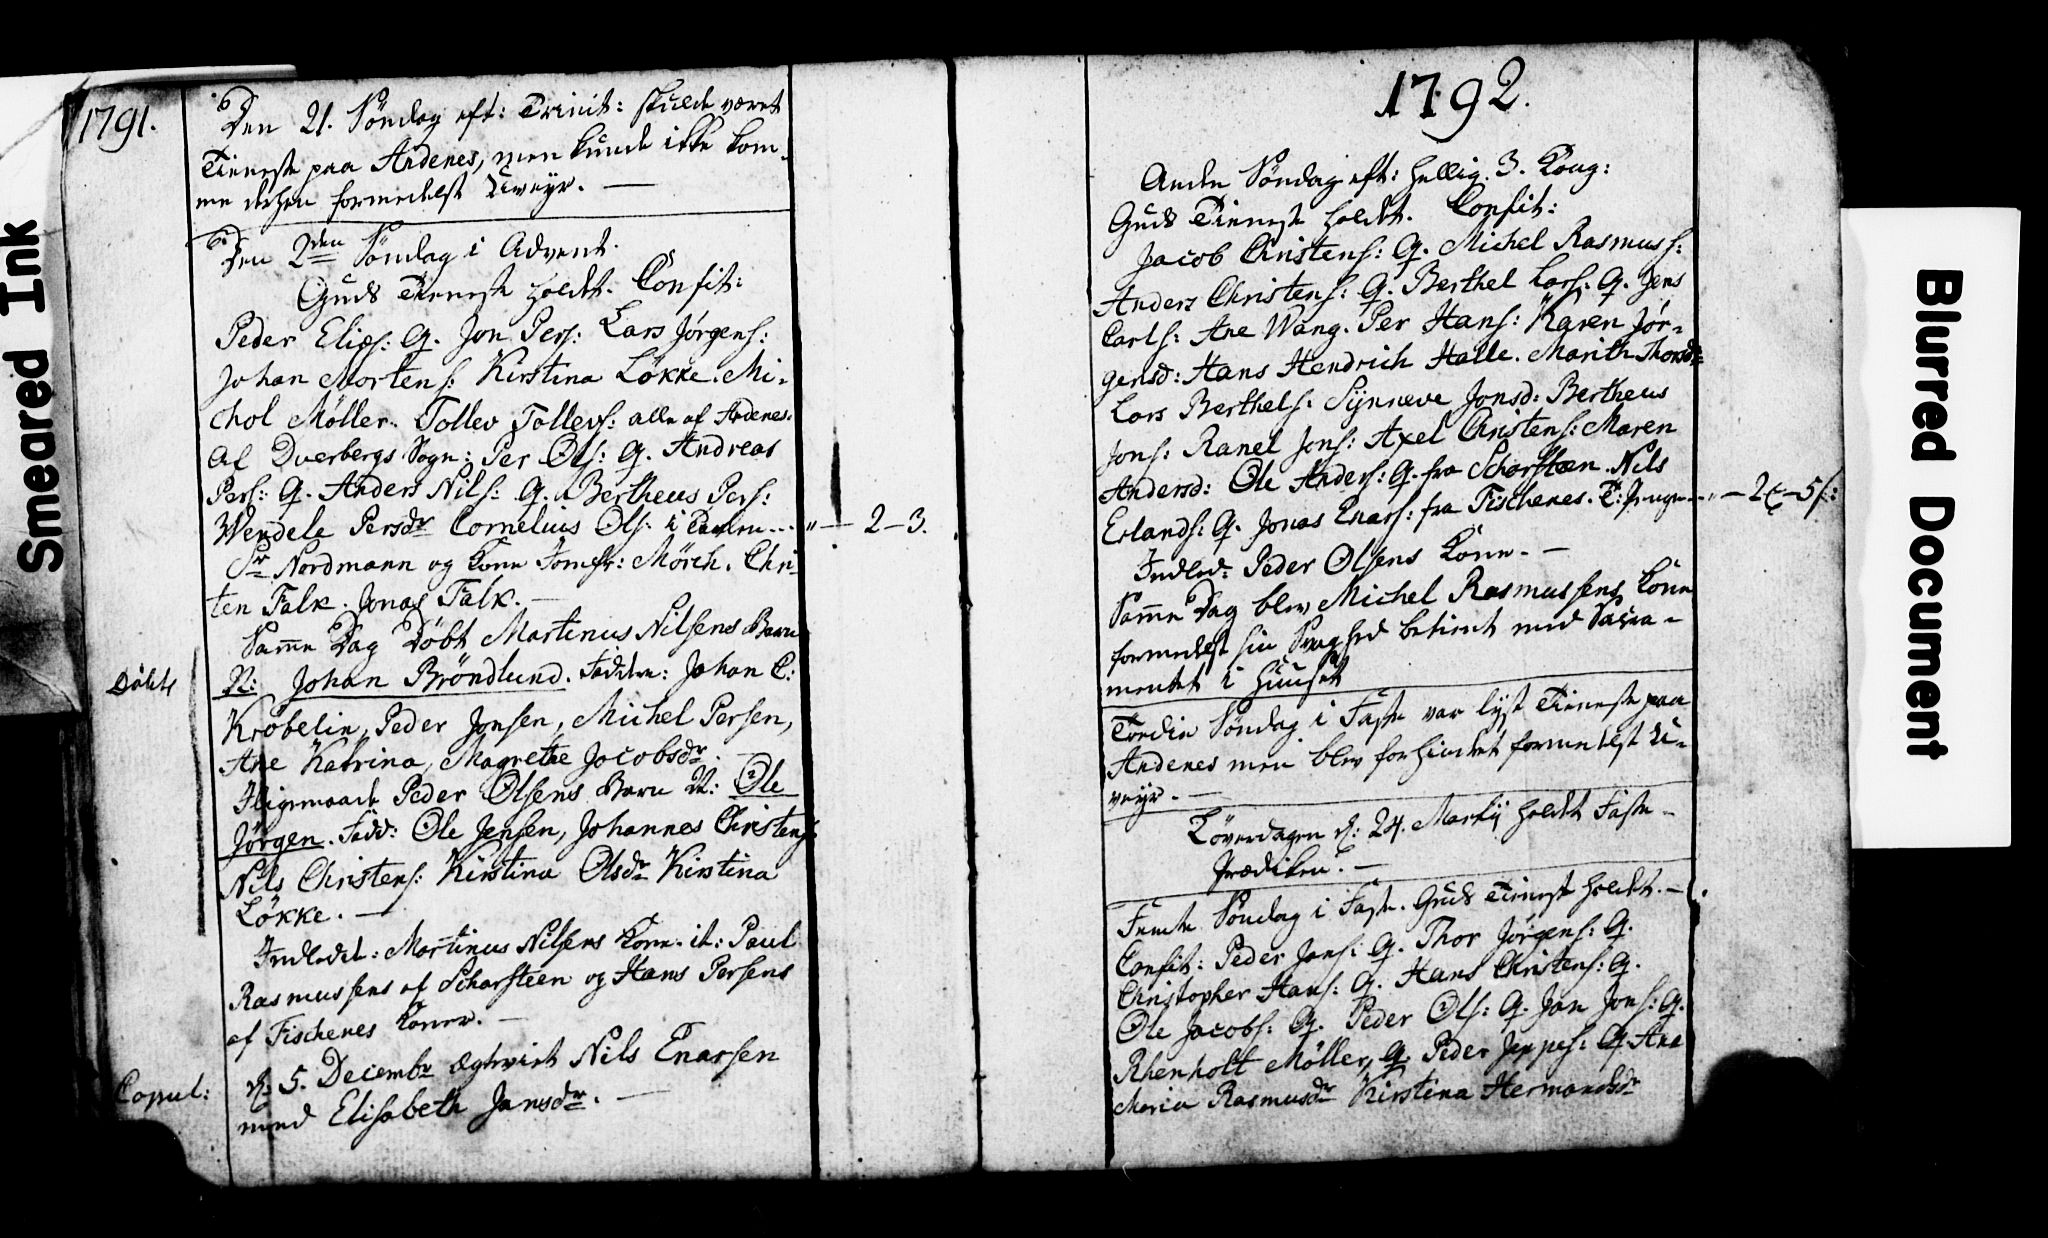 Smeared Ink
1791.
Den 21. Söndag eft: Trinit: skulde været
Tieneste paa Andenes, men kunde ikke kom-
me derhen formedelst Uveyr. —
Den 2den Söndag i Advent.
Guds Tieneste holdt. Confit:
Peder Elies: Q. Jon Pers: Lars Jørgens:
Johan Mortens: Kirstina Løkke. Mi-
chol Möller. Tollev Tollevs: alle af Andenes.
Af Dverbergs Sogn: Per Ols: Q. Andreas
Pers: Q. Anders Nils: Q. Bertheus Pers:
Wendele Persdr Cornelius Ols: i — 2 – 3.
Sr Nordmann og Kone Jomfr: Mörch. Chri-
ten Falk. Jonas Falk. —
Samme Dag Döbt Martinus Nilsens Barn
Döbte
N: Johan Bröndlund. Fadder: Johan C:
Kröbelin, Peder Jonsen, Michel Persen,
Ane Katrina, Magrethe Jacobsdr.
Iligemaade Peder Olsens Barn N: Ole
Jörgen. Fadd: Ole Jensen, Johannes Christens:
Nils Christens: Kirstina Olsdr Kirstina
Løkke. —
Indledt: Martinus Nilsens Kone. it: Paul
Rasmussens af Scharsteen og Hans Persens
af Fischenes Koner. —
Copul:
d: 5. Decembr ægteviet Nils Enarsen
med Elisabeth Jansdr. —
1792.
Anden Söndag eft: hellig. 3. Kong:
Guds Tieneste holdt. Confit:
Jacob Christens: Q. Michel Rasmuss:
Anders Christens: Q. Berthel Lars: Q. Jens
Carls: Ane Wang. Per Hans: Karen Jør-
gensd: Hans Hendrich Halle. Marith Thorsdr
Lars Berthels: Synneve Jonsd: Bertheus
Jons: Ranel Jons: Axel Christens: Maren
Andersd: Ole Anders: Q. fra Scharsteen. Nils
Erlands: Q. Jonas Enars: fra Fischenes. T: Penge — 2 — 5 s:
Indled: Peder Olsens Kone. —
Samme Dag blev Michel Rasmussens Kone
formedelst sin Svaghed betient med Sacra-
mentet i Huuset
Tredie Söndag i Faste var lyst Tieneste paa
Andenes men blev forhindret formedelst U-
veyr. —
Löverdagen d: 24. Martij holdt Faste-
Prædiken. —
Femte Söndag i Faste. Guds Tieneste holdt. —
Confit: Peder Jans: Q. Thor Jörgens: Q.
Christopher Hans: Q. Hans Christens: Q.
Ole Jacobs: Q. Peder Ols: Q. Jan Jons: Q.
Rhenholt Möller, Q. Peder Jeppes: Q. Ane
Maria Rasmusdr Kirstina Hermandsdr
Blurred Document